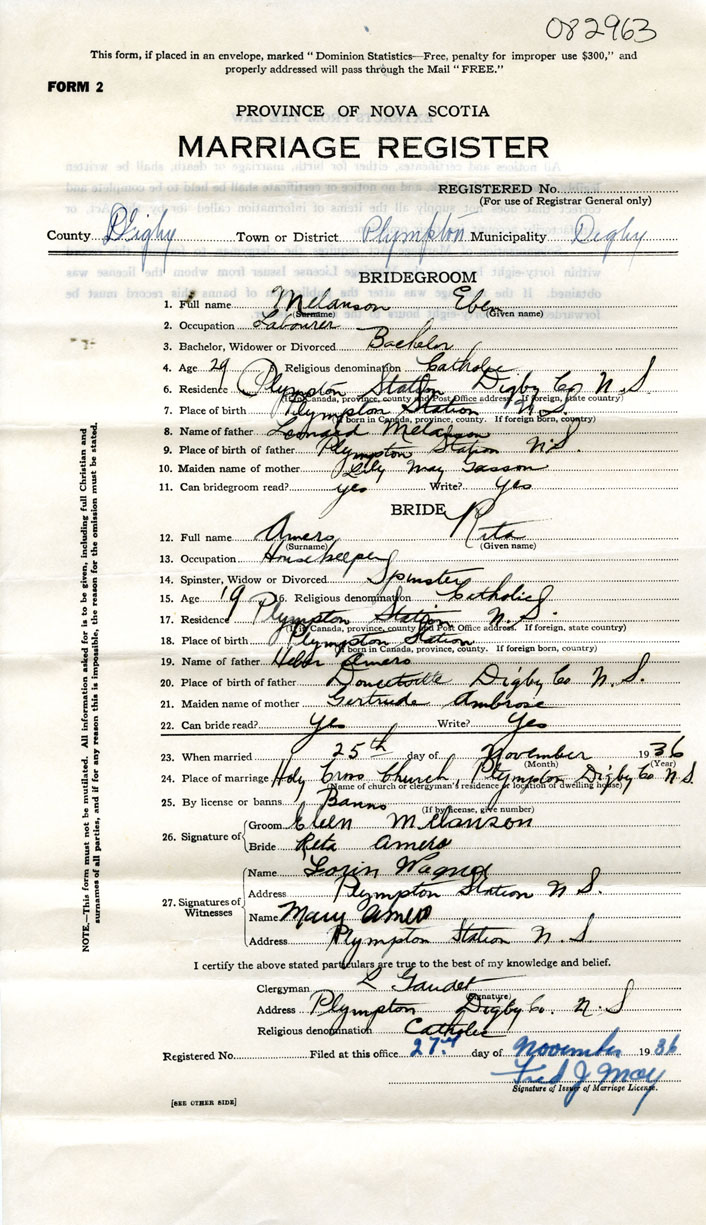 082963
This form, if placed in an envelope, marked "Dominion Statistics—Free, penalty for improper use $300," and
properly addressed will pass through the Mail "FREE."
FORM 2
PROVINCE OF NOVA SCOTIA
MARRIAGE REGISTER
REGISTERED No.
(For use of Registrar General only)
County Digby Town or District Plympton Municipality Digby
BRIDEGROOM
1. Full name Melanson Eben
(Surname) (Given name)
2. Occupation Labourer
3. Bachelor, Widower or Divorced Bachelor
4. Age 29 5. Religious denomination Catholic
6. Residence Plympton Station Digby Co N.S.
(If in Canada, province, county and Post Office address. If foreign, state country)
7. Place of birth Plympton Station N.S.
(If born in Canada, province, county. If foreign born, country)
8. Name of father Leonard Melanson
9. Place of birth of father Plympton Station N.S.
10. Maiden name of mother Lily May
11. Can bridegroom read? yes Write? yes
BRIDE
12. Full name Amero Rita
(Surname) (Given name)
13. Occupation Housekeeper
14. Spinster, Widow or Divorced Spinster
15. Age 19 16. Religious denomination Catholic
17. Residence Plympton Station N.S.
(If in Canada, province, county and Post Office address. If foreign, state country)
18. Place of birth Plympton Station
(If born in Canada, province, county. If foreign born, country)
19. Name of father Amero
20. Place of birth of father Doucetville Digby Co N.S.
21. Maiden name of mother Gertrude Ambrose
22. Can bride read? Yes Write? Yes
23. When married 25th day of November 1936
(Month) (Year)
24. Place of marriage Holy Cross Church, Plympton Digby Co. N.S.
(Name of church or clergyman's residence or location of dwelling house)
25. By license or banns Banns
(If by license, give number)
26. Signature of Groom Melanson
Bride Rita Amero
27. Signatures of Witnesses Name Lorin Wagner
Address Plympton Station N S.
Name Mary Amero
Address Plympton Station N. S
I certify the above stated particulars are true to the best of my knowledge and belief.
Clergyman L Gaudet
(Signature)
Address Plympton Digby Co. N. S
Religious denomination Catholic
Registered No. Filed at this office 27th day of November 1936
Fred J May
Signature of Issuer of Marriage License.
[SEE OTHER SIDE]
NOTE.—This form must not be mutilated. All information asked for is to be given, including full Christian and
surnames of all parties, and if for any reason this is impossible, the reason for the omission must be stated.